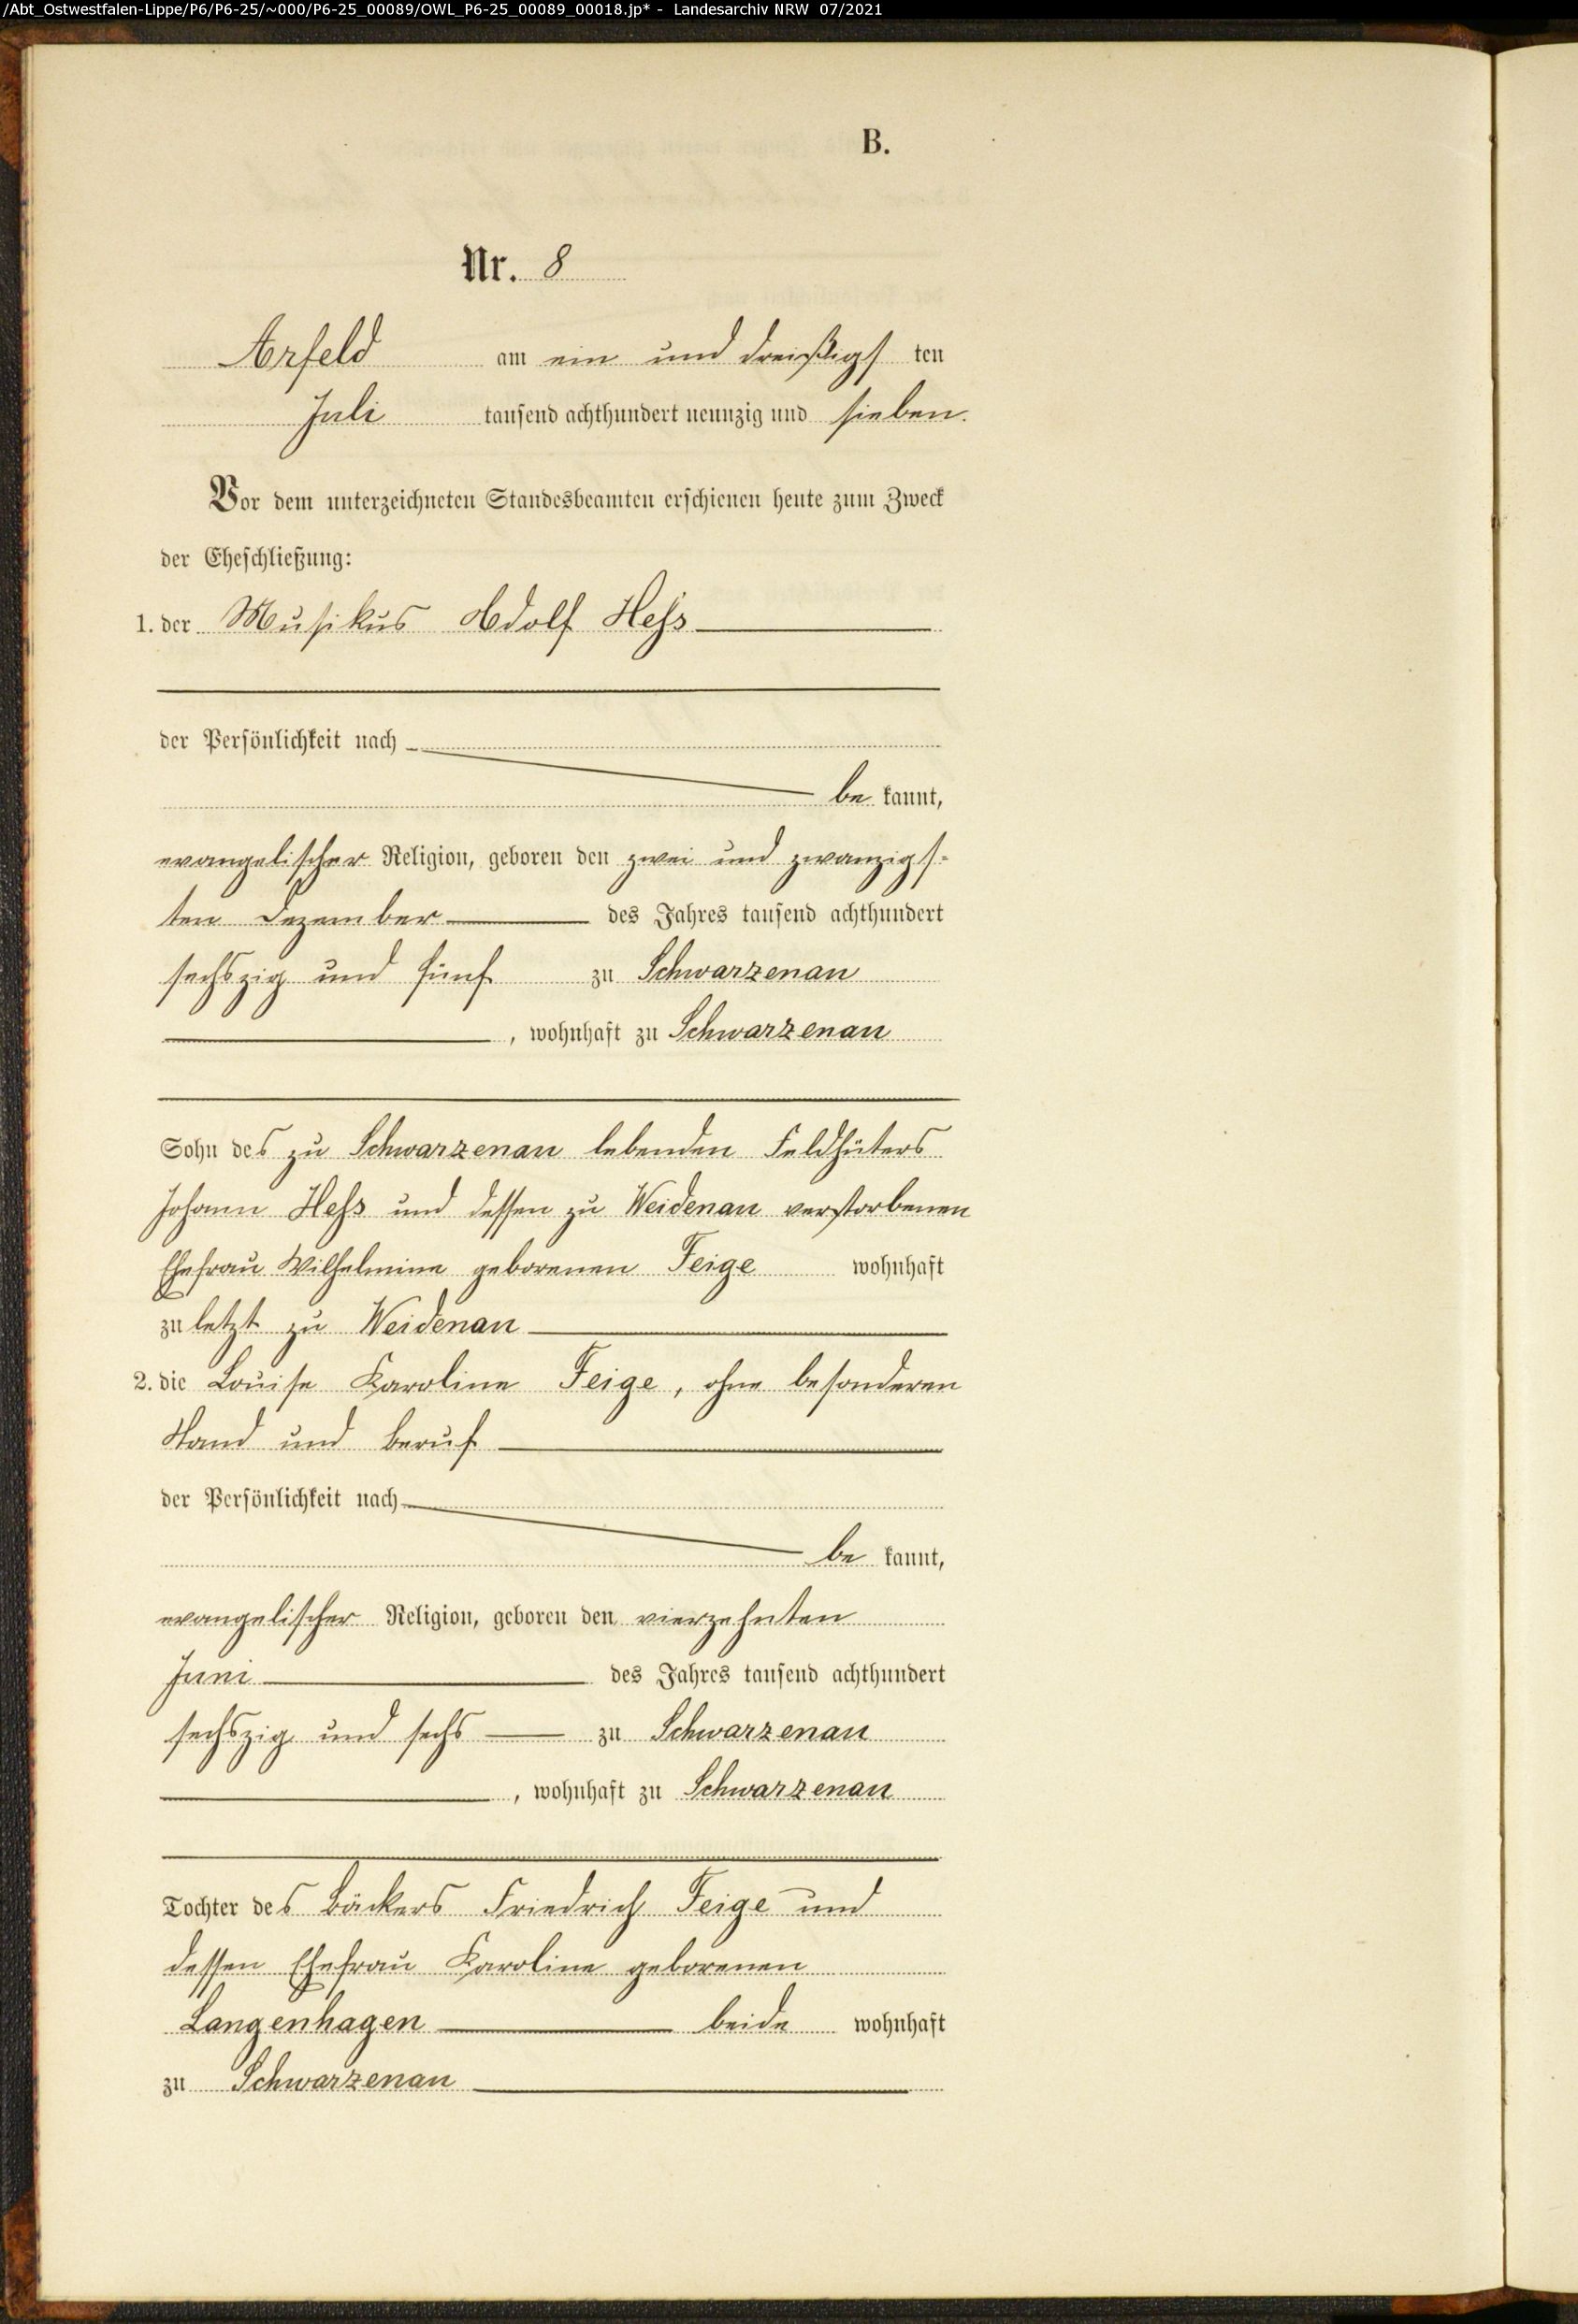 /Abt_Ostwestfalen-Lippe/P6/P6-25/~000/P6-25_00089/OWL_P6-25_00089_00018.jp* - Landesarchiv NRW 07/2021
B.
Nr. 8
Arfeld am ein und dreißigs ten
Juli tausend achthundert neunzig und sieben.
Vor dem unterzeichneten Standesbeamten erschienen heute zum Zweck
der Eheschließung:
1. der Musikus Adolf Heſs
der Persönlichkeit nach
be kannt,
evangelischer Religion, geboren den zwei und zwanzigs-
ten Dezember des Jahres tausend achthundert
sechszig und fünf zu Schwarzenau
, wohnhaft zu Schwarzenau
Sohn des zu Schwarzenau lebenden Feldhüters
Johann Heſs und dessen zu Weidenau verstorbenen
Ehefrau Wilhelmine geborenen Feige wohnhaft
zuletzt zu Weidenau
2. die Louise Karoline Feige, ohne besonderen
Stand und Beruf
der Persönlichkeit nach
be kannt,
evangelischer Religion, geboren den vierzehnten
Juni des Jahres tausend achthundert
sechszig und sechs zu Schwarzenau
, wohnhaft zu Schwarzenau
Tochter des Bäckers Friedrich Feige und
dessen Ehefrau Karoline geborenen
Langenhagen beide wohnhaft
zu Schwarzenau